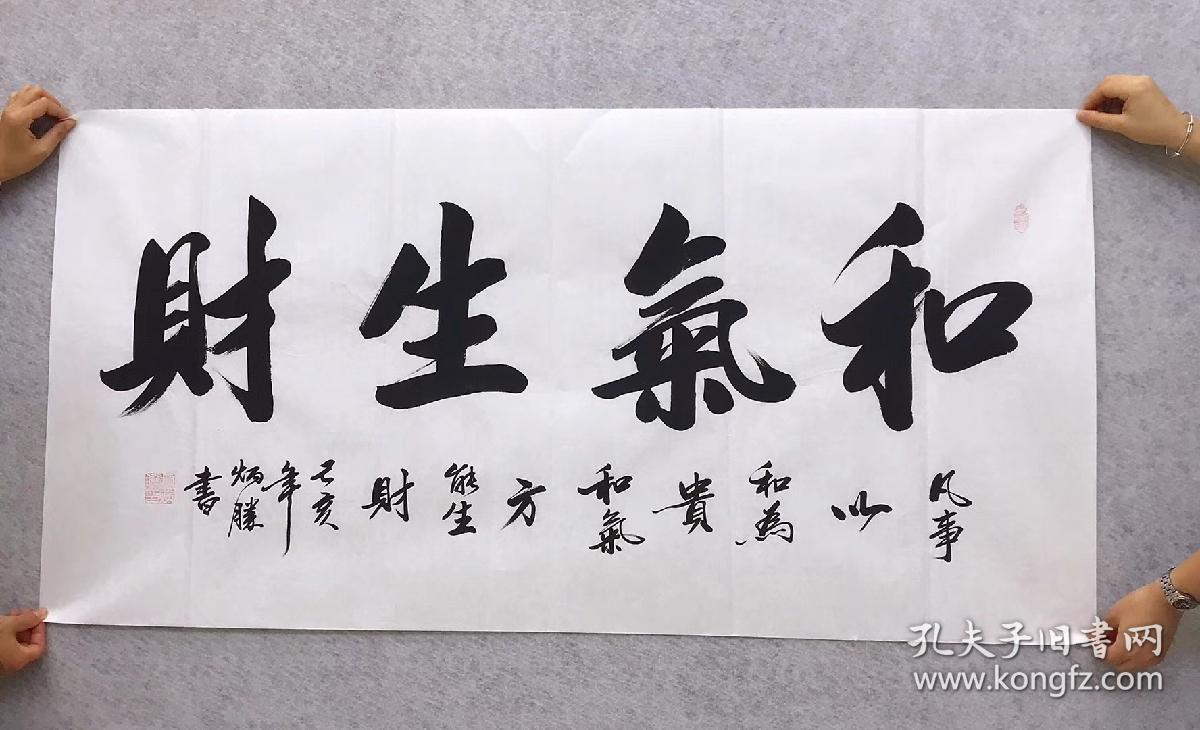 和氣生財
凡事
以
和為
貴
和氣
方
能生
財
己亥
年
炳勝
書
孔夫子旧书网
www.kongfz.com